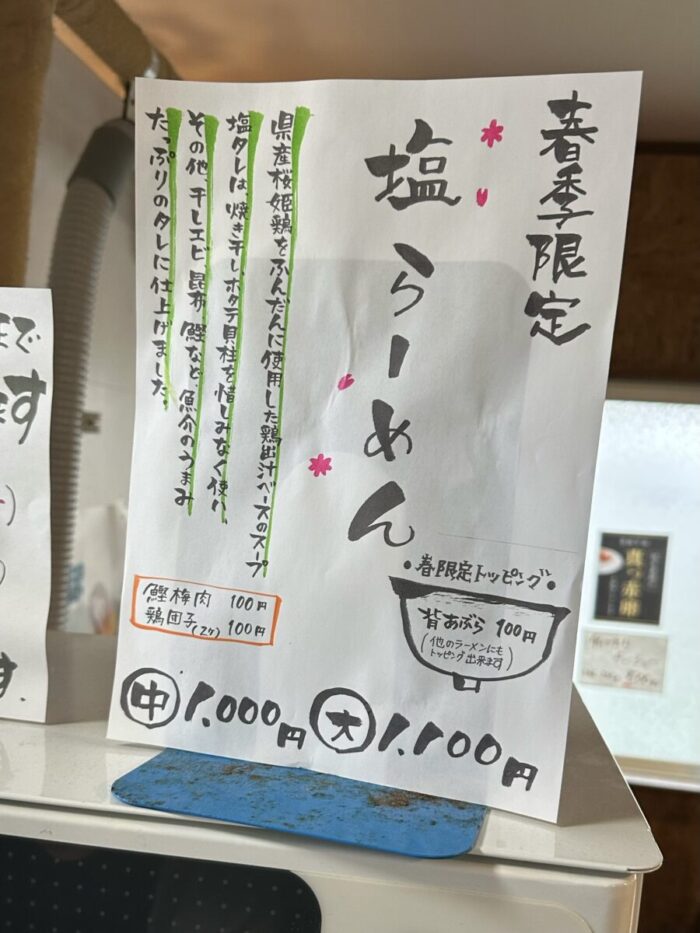 春季限定
塩らーめん
県産桜姫鶏をふんだんに使用した鶏出汁ベースのスープ
塩タレは、焼き干し、ホタテ貝柱を惜しみなく使い、
その他、干しエビ、昆布、鰹など、魚介のうまみ
たっぷりのタレに仕上げました。
・春限定トッピング・
背あぶら 100円
(他のラーメンにも
トッピング出来ます)
鰹梅肉 100円
鶏団子(2ケ) 100円
中 1,000円 大 1,100円
まで
ます
す。